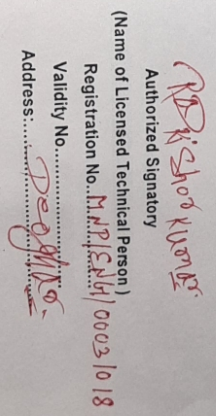 RD Kishor Kumar
Authorized Signatory
(Name of Licensed Technical Person)
Registration No. MNP/ENH/0003/018
Validity No..............................
Address:... Deoghar.